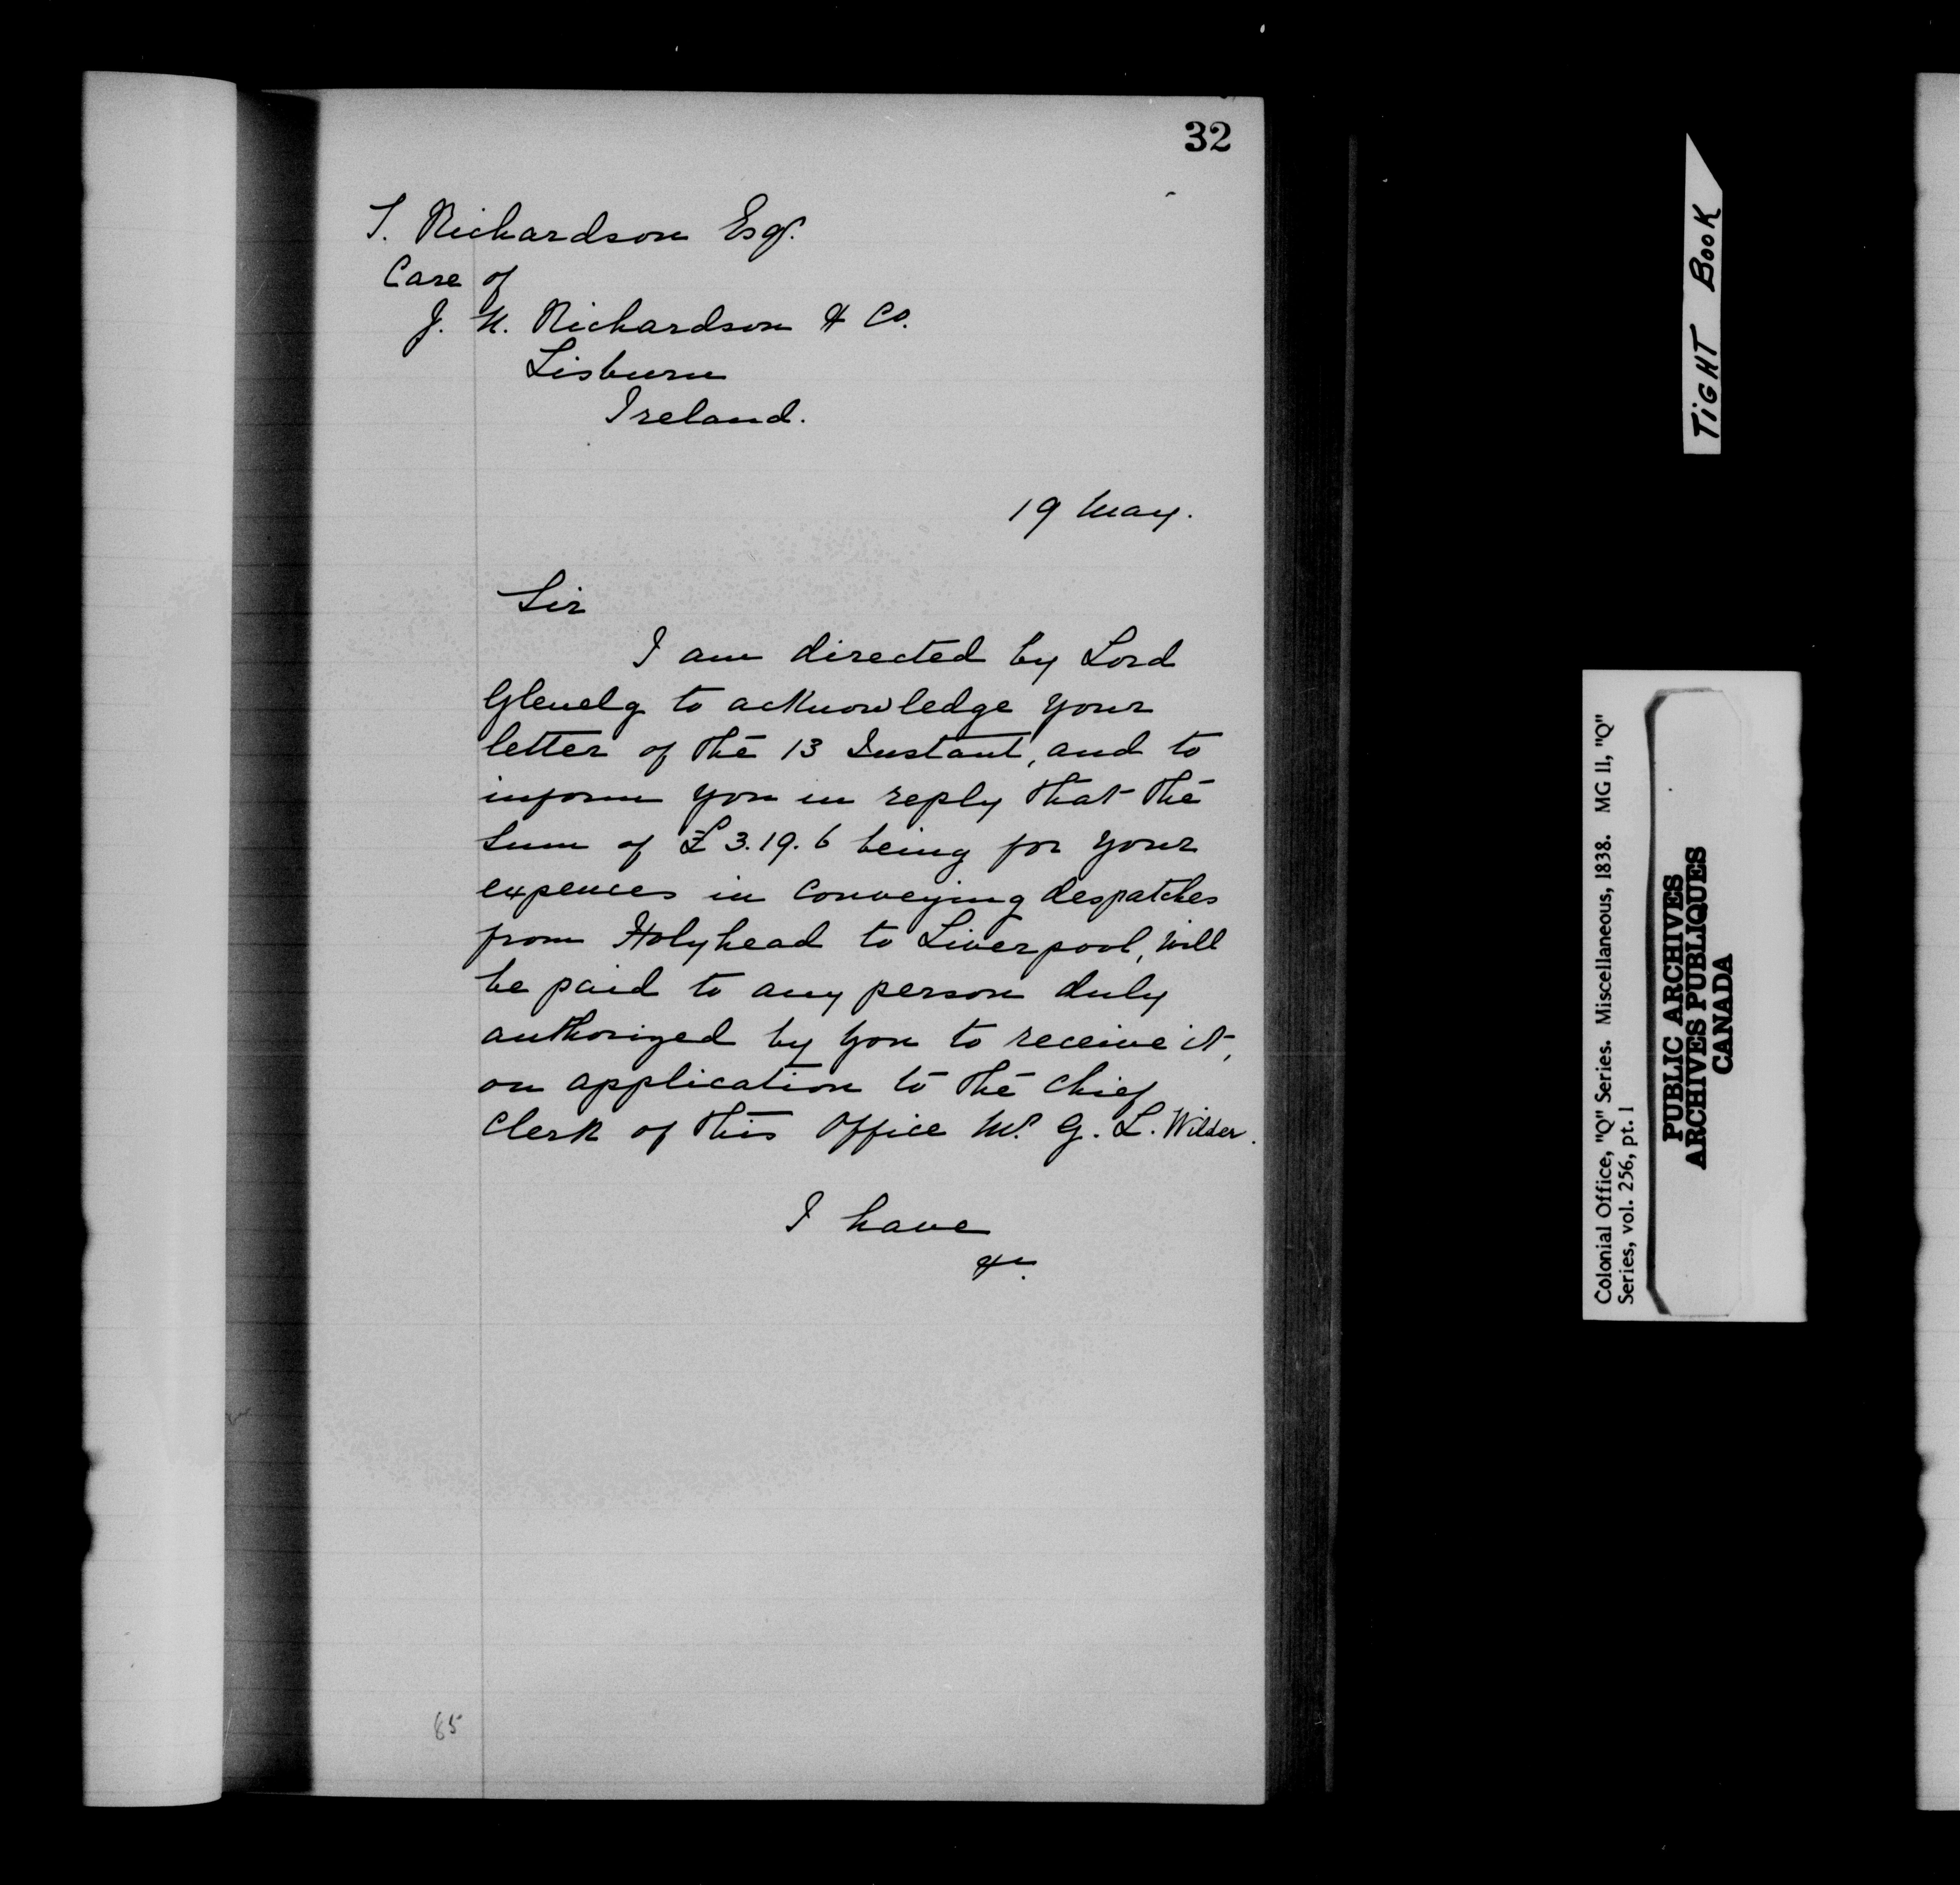 32
T. Richardson Esqr.
Care of
J. N. Richardson & Co.
Lisburn
Ireland.
19 May.
Sir
I am directed by Lord
Glenelg to acknowledge your
letter of the 13 Instant, and to
inform you in reply that the
sum of £3.19.6 being for your
expences in conveying despatches
from Holyhead to Liverpool, will
be paid to any person duly
authorized by you to receive it,
on application to the Chief
Clerk of this Office Mr. G. L. Wilder.
I have
&c.
85
TIGHT BOOK
Colonial Office, "Q" Series. Miscellaneous, 1838. MG 11, "Q"
Series, vol. 256, pt. 1
PUBLIC ARCHIVES
ARCHIVES PUBLIQUES
CANADA